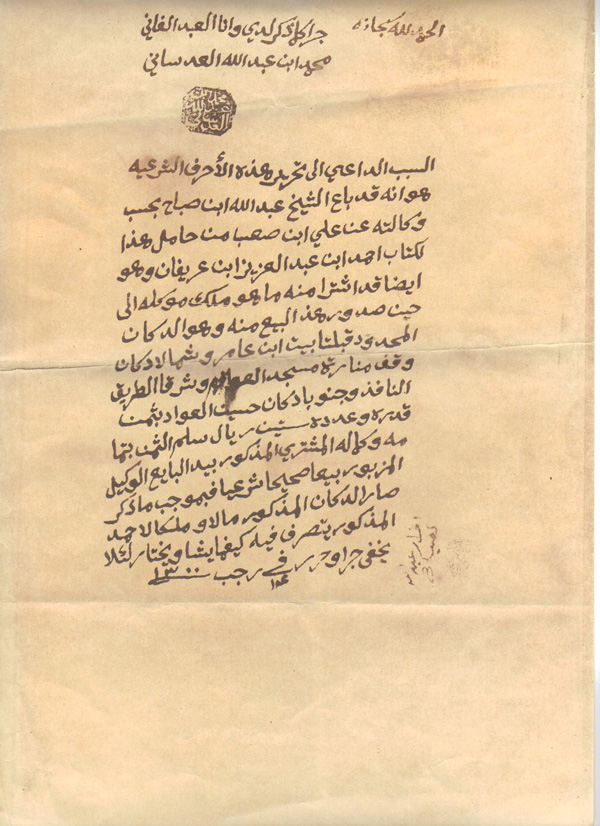 الحمد لله سبحانه
جرا كما ذكر لدي وانا العبد الفاني
محمد ابن عبد الله العدساني
السبب الداعي الى تحرير هذه الأحرف الشرعيه
هو انه قد باع الشيخ عبد الله ابن صباح بحسب
وكالته عن علي ابن صعب من حامل هذا
لكتاب احمد ابن عبد العزيز ابن عريفان وهو
ايضا قد اشترا منه ما هو ملك موكله الى
حين صدور هذا البيع منه وهو الدكان
المحدود قبلتا بيت ابن عامر وشمالا دكان
وقف منارة مسجد وشرقا الطريق
النافذ وجنوبا دكان حسين العواد بثمن
قدره وعدده ستين ريال سلم الثمن بتما
مه وكماله المشتري المذكور بيد البايع الوكيل
المزبور بيعا صحيحا شرعيا فبموجب ما ذكر
صار الدكان المذكور مالا وملكا لاحمد
المذكور يتصرف فيه كيفما يشا ويختار لئلا
يخفى جرا وحرر في رجب ١٣٠٠